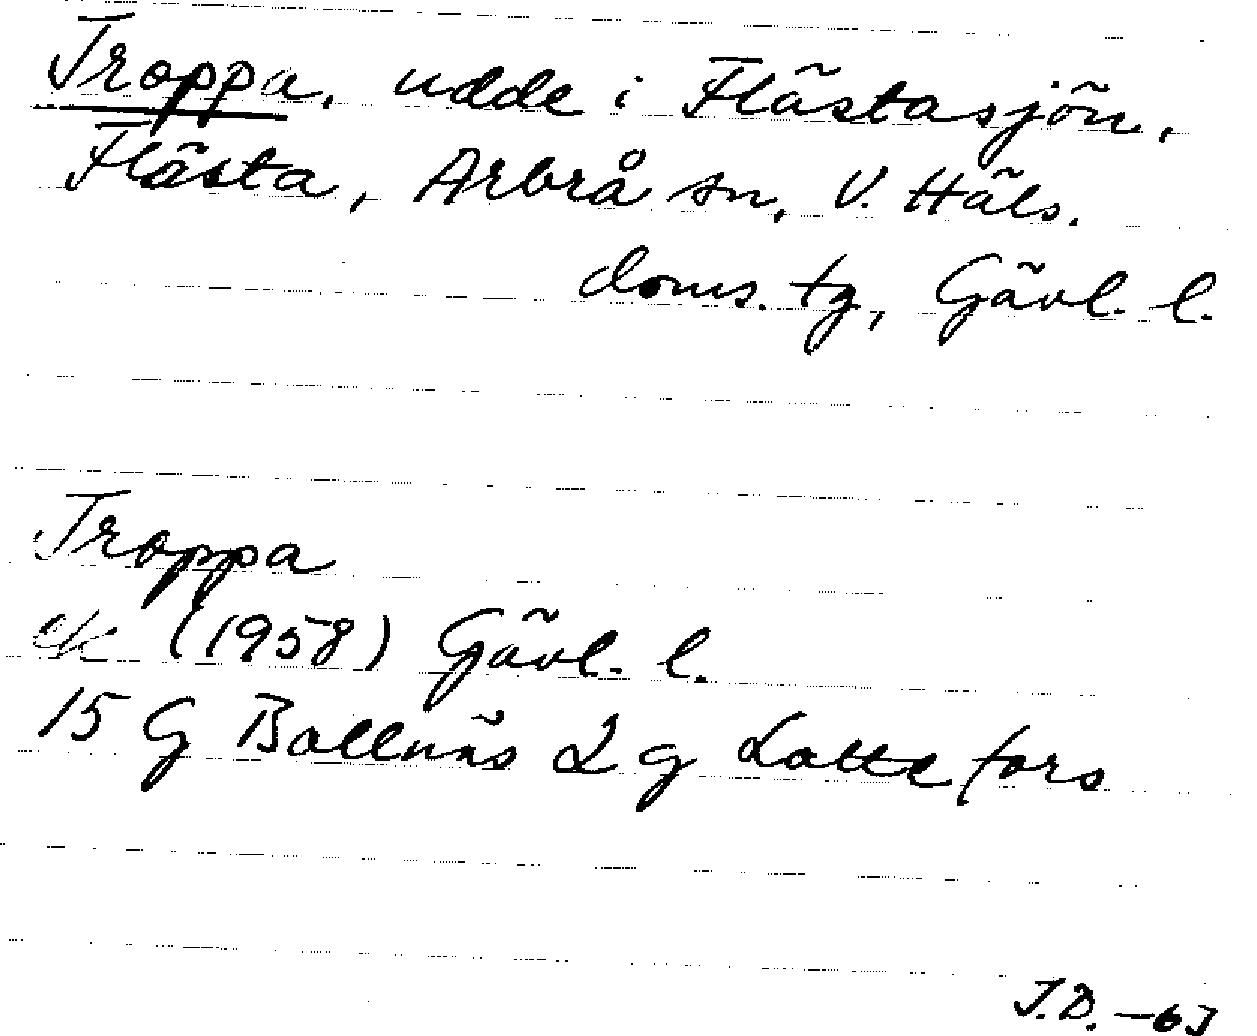 Troppa, udde i Flästasjön,
Flästa, Arbrå sn, V. Häls.
doms. tg, Gävl. l.
Troppa
ek (1958) Gävl. l.
15 G Bollnäs 2 g Lottefors
J.D. -63